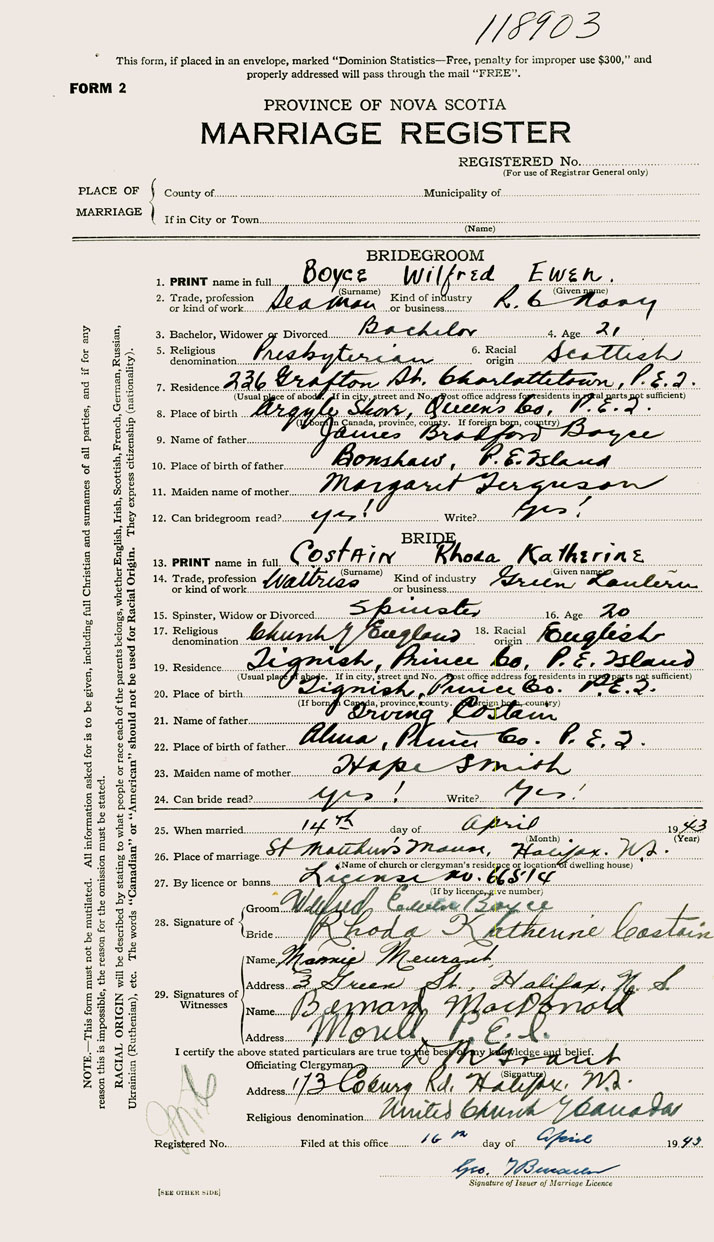 118903
This form, if placed in an envelope, marked “Dominion Statistics—Free, penalty for improper use $300,” and
properly addressed will pass through the mail “FREE”.
FORM 2
PROVINCE OF NOVA SCOTIA
MARRIAGE REGISTER
REGISTERED No.
(For use of Registrar General only)
PLACE OF MARRIAGE
County of Municipality of
If in City or Town
(Name)
BRIDEGROOM
1. PRINT name in full Boyce Wilfred Ewen.
(Surname) (Given name)
2. Trade, profession or kind of work Seaman Kind of industry or business R. C Navy
3. Bachelor, Widower or Divorced Bachelor 4. Age 21
5. Religious denomination Presbyterian 6. Racial origin Scottish
7. Residence 236 Grafton St. Charlottetown, P.E.I.
(Usual place of abode. If in city, street and No. Post office address for residents in rural parts not sufficient)
8. Place of birth Argyle Shore, Queens Co, P.E.I.
(If born in Canada, province, county. If foreign born, country)
9. Name of father James Bradford Boyce
10. Place of birth of father Bonshaw, P.E. Island
11. Maiden name of mother Margaret Ferguson
12. Can bridegroom read? yes! Write? Yes!
BRIDE
13. PRINT name in full Costain Rhoda Katherine
(Surname) (Given name)
14. Trade, profession or kind of work Waitriss Kind of industry or business Green Lantern
15. Spinster, Widow or Divorced Spinster 16. Age 20
17. Religious denomination Church of England 18. Racial origin English
19. Residence Tignish, Prince Co, P.E. Island
(Usual place of abode. If in city, street and No. Post office address for residents in rural parts not sufficient)
20. Place of birth Tignish, Prince Co. P.E.I.
(If born in Canada, province, county. If foreign born, country)
21. Name of father Irving Costain
22. Place of birth of father Alma, Prince Co. P.E.I.
23. Maiden name of mother Hope Smith
24. Can bride read? yes! Write? Yes!
25. When married 14th day of April 1943
(Month) (Year)
26. Place of marriage St Matthew's Manse, Halifax. N.S.
(Name of church or clergyman's residence or location of dwelling house)
27. By licence or banns License no. 66514
(If by licence, give number)
28. Signature of
Groom Wilfred Ewen Boyce
Bride Rhoda Katherine Costain
29. Signatures of Witnesses
Name Mamie Meurant
Address 3 Green St, Halifax, N.S
Name Bernard MacDonald
Address Morell P.E.I.
I certify the above stated particulars are true to the best of my knowledge and belief.
Officiating Clergyman Grant
(Signature)
Address 173 Coburg Rd. Halifax. N.S.
Religious denomination United Church of Canada
Registered No. Filed at this office 16th day of April 1943
Geo.
Signature of Issuer of Marriage Licence
[SEE OTHER SIDE]
NOTE.—This form must not be mutilated. All information asked for is to be given, including full Christian and surnames of all parties, and if for any
reason this is impossible, the reason for the omission must be stated.
RACIAL ORIGIN will be described by stating to what people or race each of the parents belongs, whether English, Irish, Scottish, French, German, Russian,
Ukrainian (Ruthenian), etc. The words “Canadian” or “American” should not be used for Racial Origin. They express citizenship (nationality).